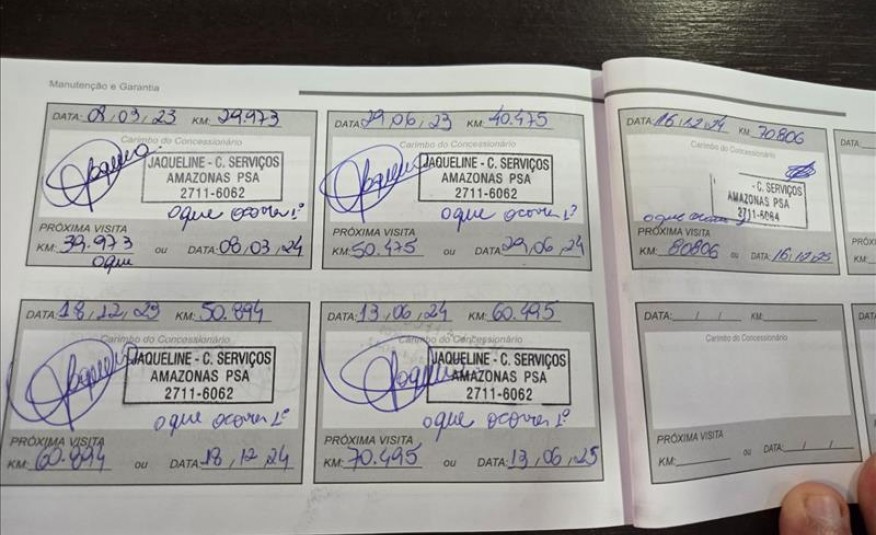 Manutenção e Garantia
DATA: 08, 03, 23 KM: 29.973
Carimbo do Concessionário
JAQUELINE - C. SERVIÇOS
AMAZONAS PSA
2711-6062
o que ocorrer 1º
PRÓXIMA VISITA
KM: 39.973 OU DATA: 08, 03, 24
oque
DATA: 29, 06, 23 KM: 40.475
Carimbo do Concessionário
JAQUELINE - C. SERVIÇOS
AMAZONAS PSA
2711-6062
o que ocorrer 1º
PRÓXIMA VISITA
KM: 50.475 OU DATA: 29, 06, 24
DATA: 18, 12, 23 KM: 50.894
Carimbo do Concessionário
JAQUELINE - C. SERVIÇOS
AMAZONAS PSA
2711-6062
o que ocorrer 1º
PRÓXIMA VISITA
KM: 60.894 OU DATA: 18, 12, 24
DATA: 13, 06, 24 KM: 60.495
Carimbo do Concessionário
JAQUELINE - C. SERVIÇOS
AMAZONAS PSA
2711-6062
o que ocorrer 1º
PRÓXIMA VISITA
KM: 70.495 OU DATA: 13, 06, 25
DATA: 16, 12, 24 KM: 70806
Carimbo do Concessionário
- C. SERVIÇOS
AMAZONAS PSA
o que
PRÓXIMA VISITA
KM: 80806 OU DATA: 16, 12, 25
DATA: / / KM:
Carimbo do Concessionário
PRÓXIMA VISITA
KM: OU DATA: / /
DATA:
KM:
KM: